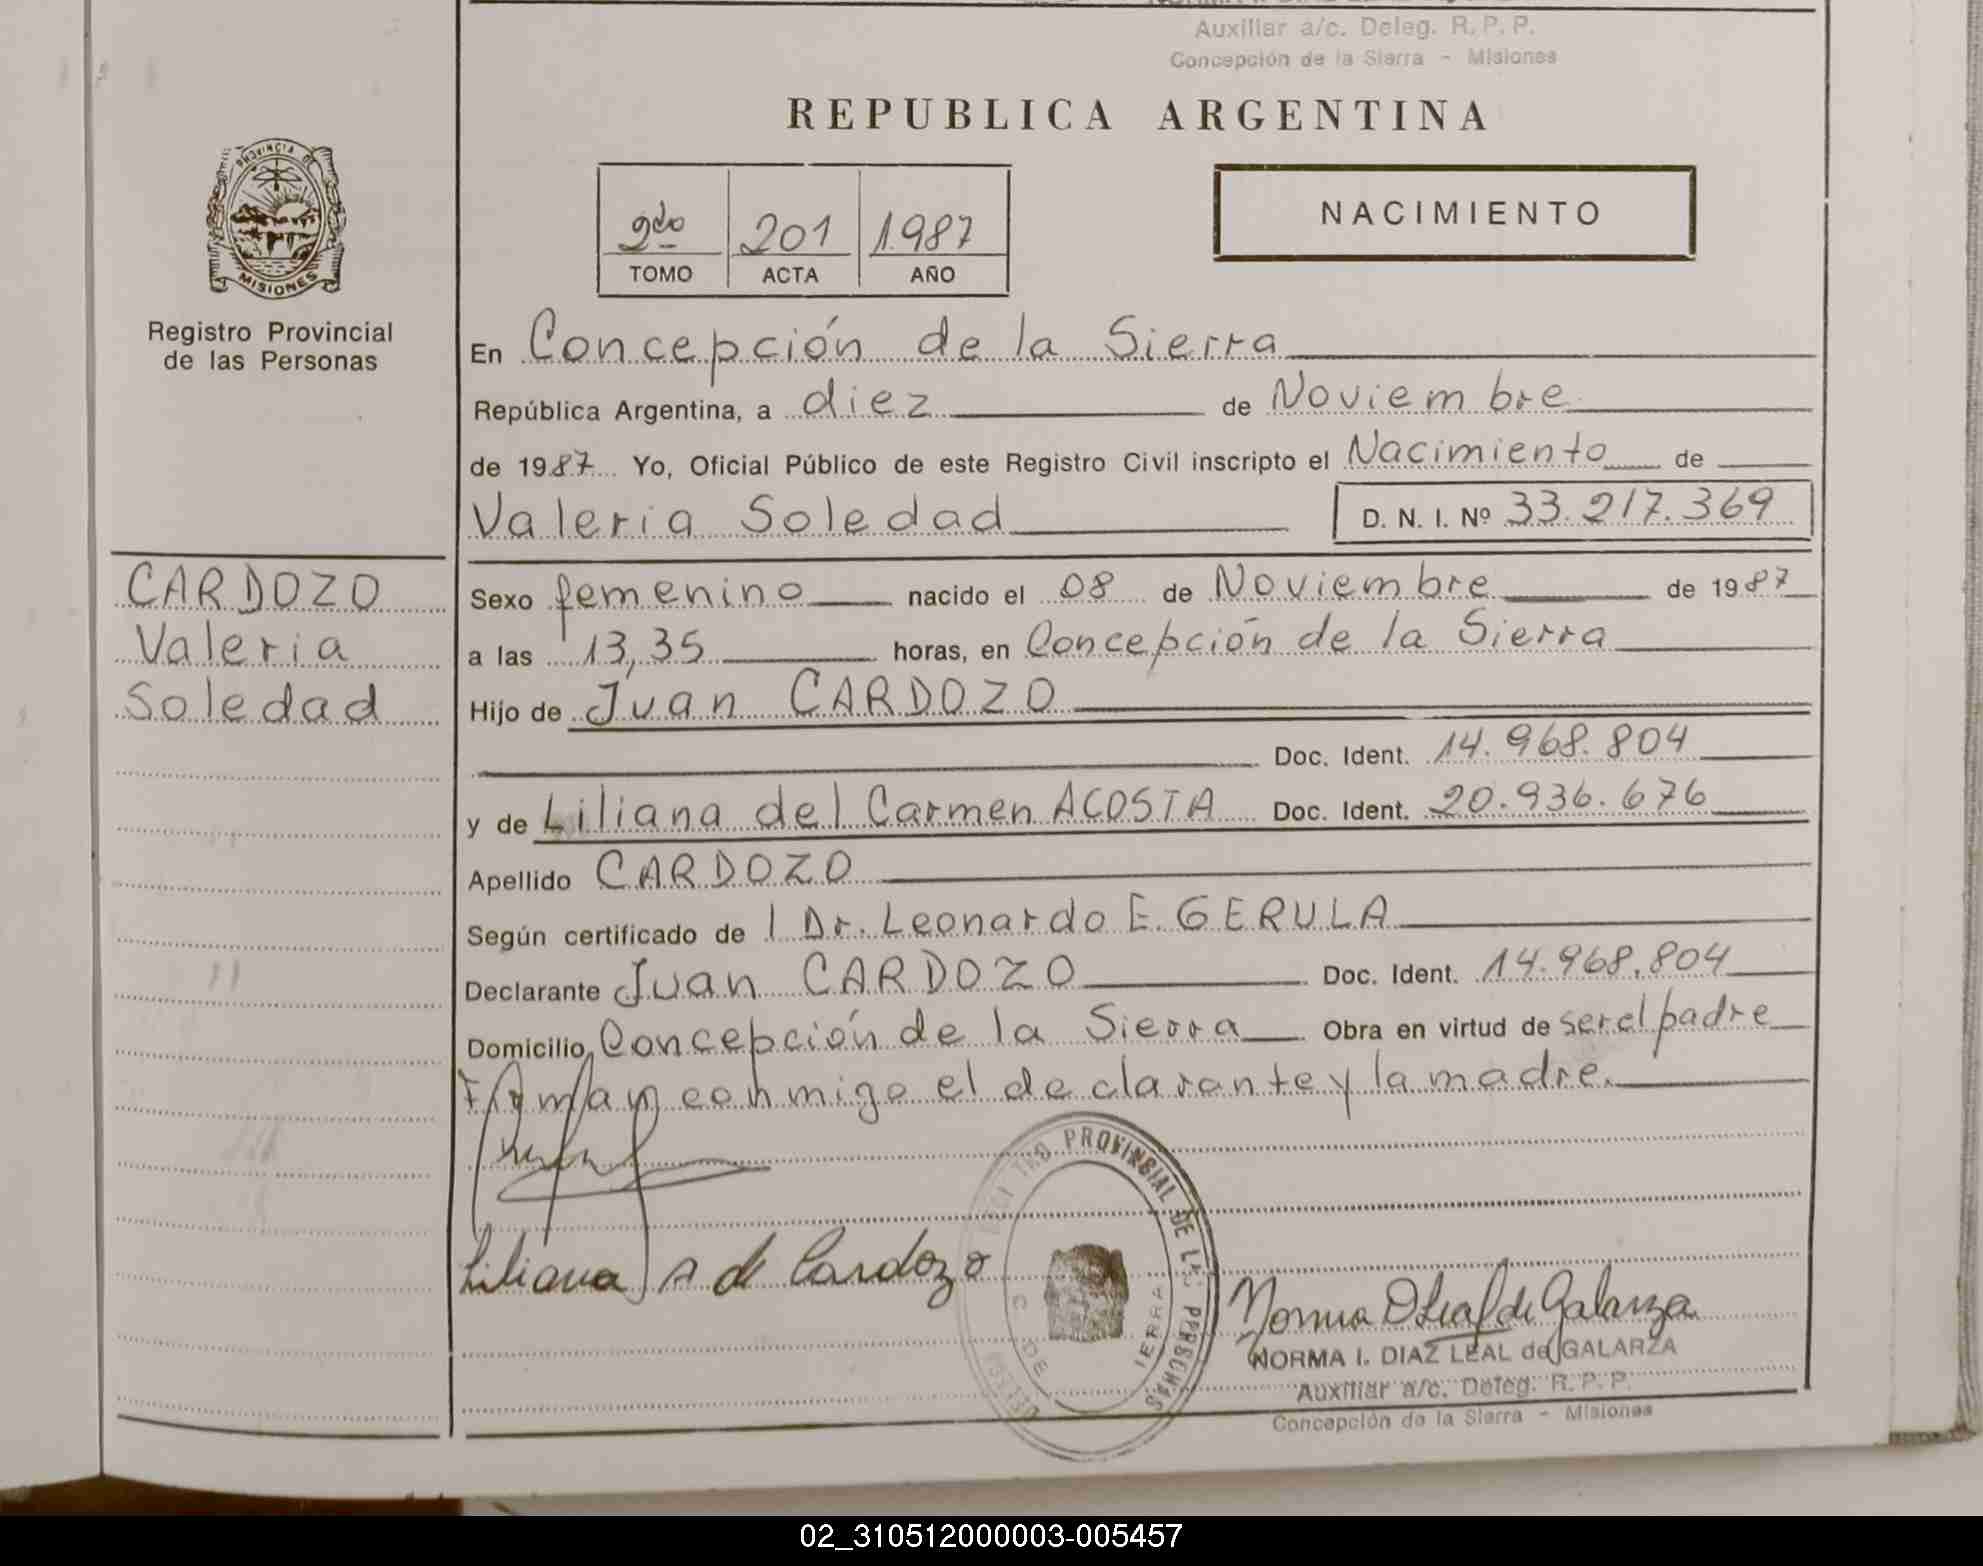 Auxiliar a/c. Deleg. R. P. P.
Concepción de la Sierra - Misiones
REPUBLICA ARGENTINA
PROVINCIA DE
MISIONES
Registro Provincial
de las Personas
2do 201 1987
TOMO ACTA AÑO
NACIMIENTO
En Concepción de la Sierra
República Argentina, a diez de Noviembre
de 1987 Yo, Oficial Público de este Registro Civil inscripto el Nacimiento de
Valeria Soledad D. N. I. Nº 33.217.369
CARDOZO
Valeria
Soledad
Sexo femenino nacido el 08 de Noviembre de 1987
a las 13,35 horas, en Concepción de la Sierra
Hijo de Juan CARDOZO
Doc. Ident. 14.968.804
y de Liliana del Carmen ACOSTA Doc. Ident. 20.936.676
Apellido CARDOZO
Según certificado de l Dr. Leonardo E. GERULA
Declarante Juan CARDOZO Doc. Ident. 14.968.804
Domicilio Concepción de la Sierra Obra en virtud de ser el padre
Firman conmigo el declarante y la madre.
Liliana A de Cardozo
PROVINCIAL DE LAS PERSONAS
DE
IERRA
NORMA I. DIAZ LEAL de GALARZA
Auxiliar a/c. Deleg. R. P. P.
Concepción de la Sierra - Misiones
02_310512000003-005457